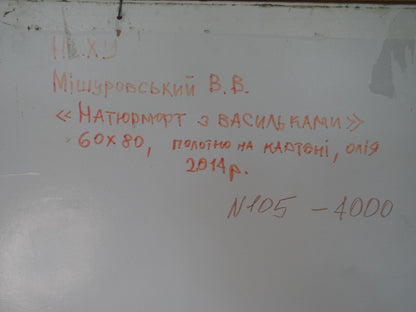 Н.С.Х.У
Мішуровський В.В.
«Натюрморт з васильками»
60х80, полотно на картоні, олія
2014р.
N105 – 4000